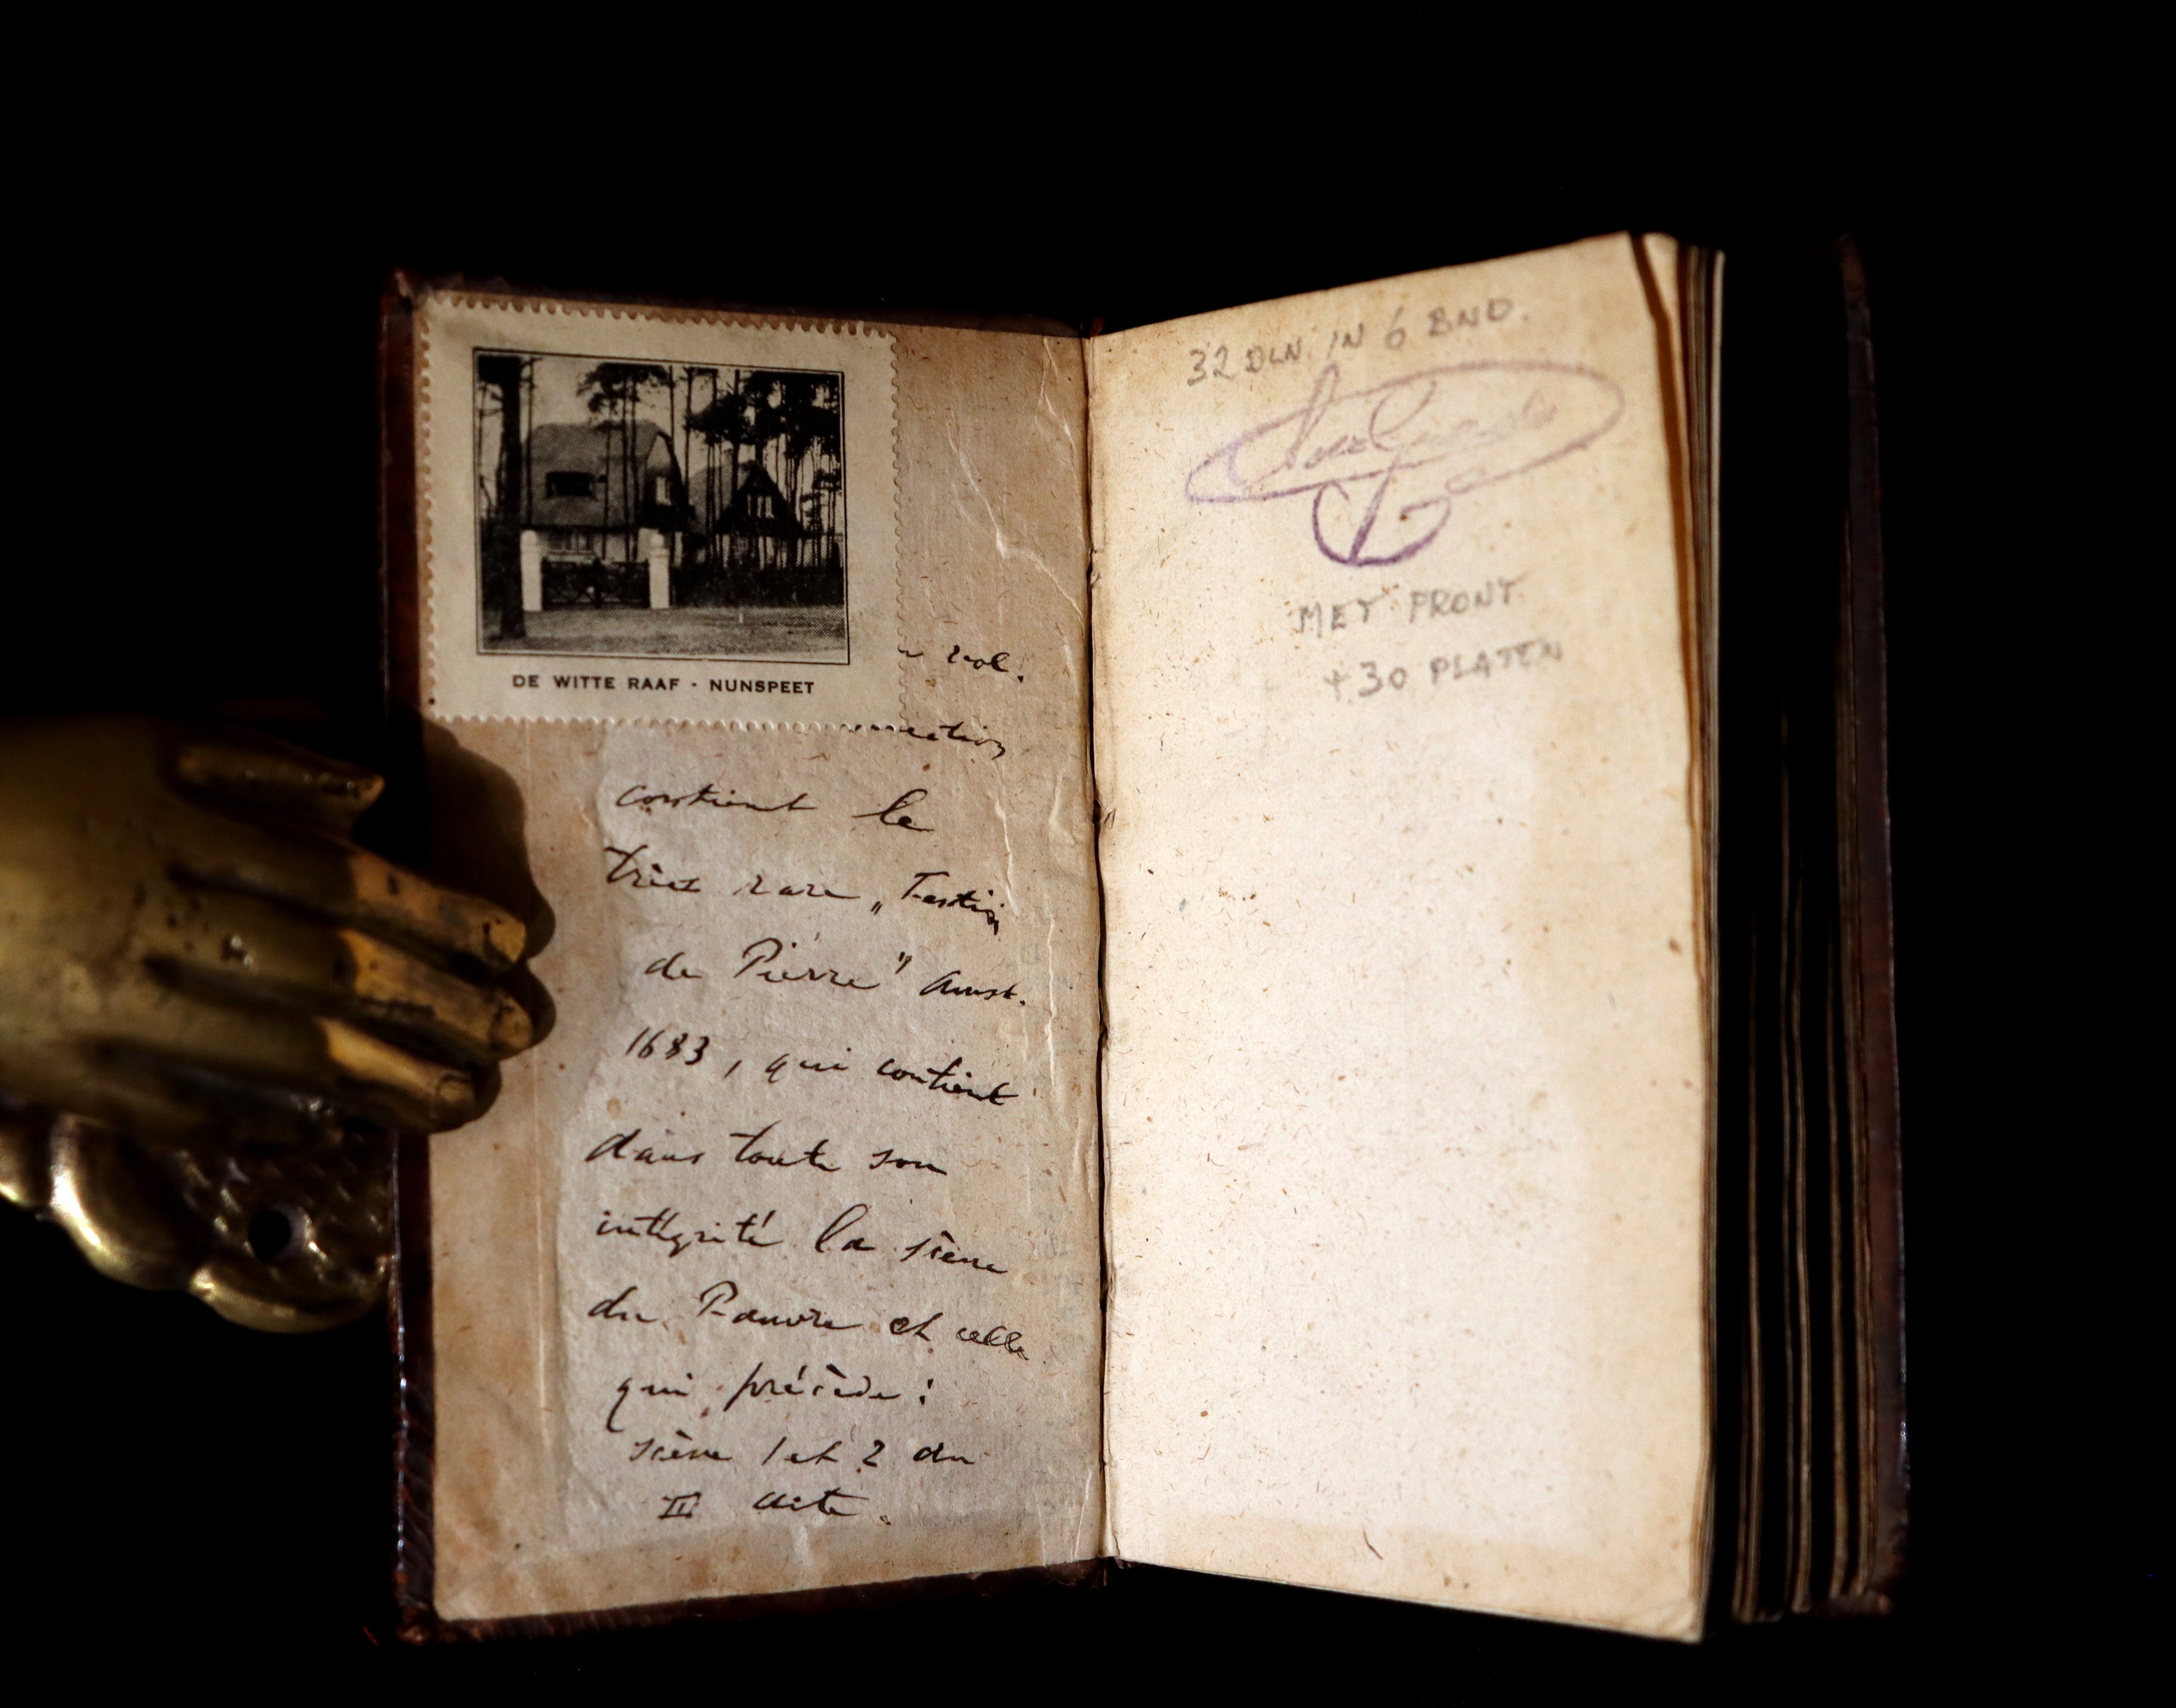 DE WITTE RAAF - NUNSPEET
vol.
contient le
très rare „Festin
de Pierre" Amst.
1683, qui contient
dans toute son
intégrité la scène
du Pauvre et celle
qui précède:
scène 1 et 2 du
III acte.
32 DLN. IN 6 BND.
MET FRONT
+ 30 PLATEN